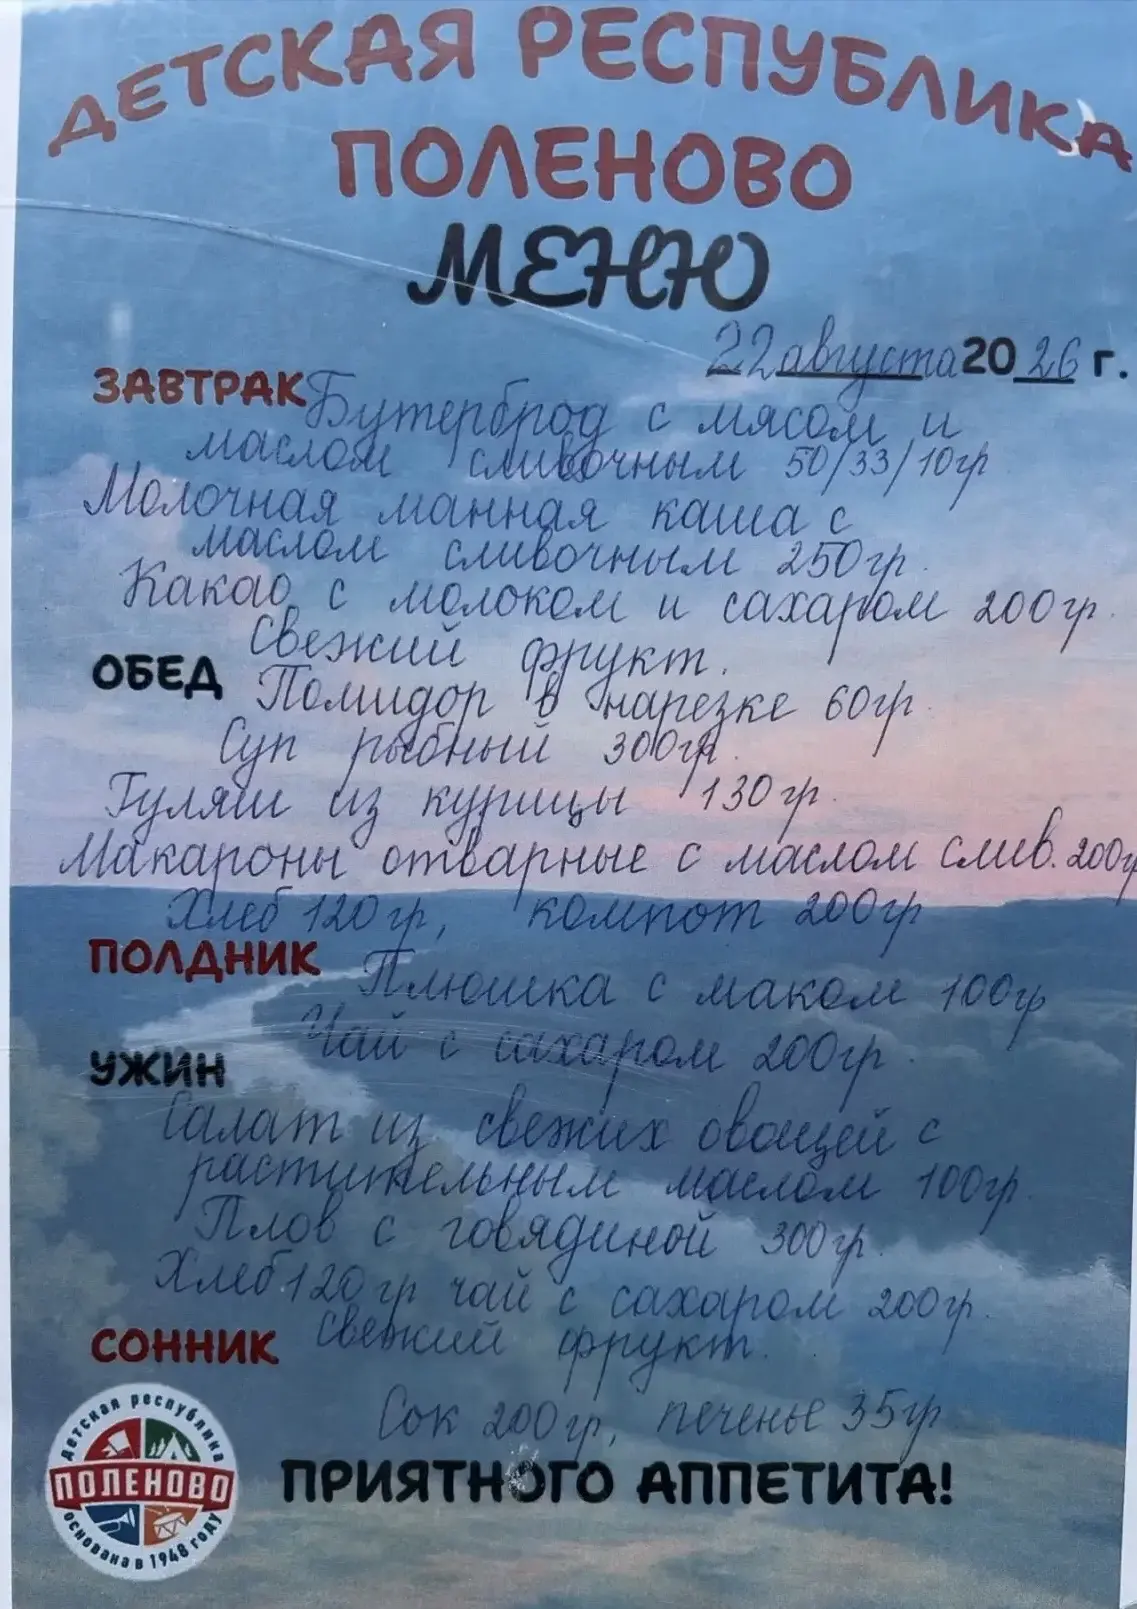 ДЕТСКАЯ РЕСПУБЛИКА
ПОЛЕНОВО
МЕНЮ
22 августа 2026 г.
ЗАВТРАК Бутерброд с мясом и
маслом сливочным 50/33/10гр
Молочная манная каша с
маслом сливочным 250гр.
Какао с молоком и сахаром 200гр.
Свежий фрукт.
ОБЕД Помидор в нарезке 60гр.
Суп рыбный 300гр.
Гуляш из курицы 130гр.
Макароны отварные с маслом слив. 200гр
Хлеб 120гр, компот 200гр
ПОЛДНИК Плюшка с маком 100гр
Чай с сахаром 200гр.
УЖИН
Салат из свежих овощей с
растительным маслом 100гр.
Плов с говядиной 300гр.
Хлеб 120гр чай с сахаром 200гр.
свежий фрукт.
СОННИК
Сок 200гр, печенье 35гр.
ПРИЯТНОГО АППЕТИТА!
Детская республика
ПОЛЕНОВО
основана в 1948 году